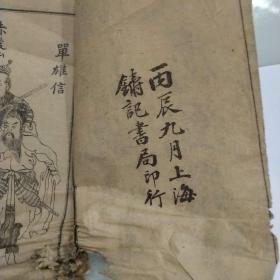 丙辰九月上海
鑄記書局印行
單雄信